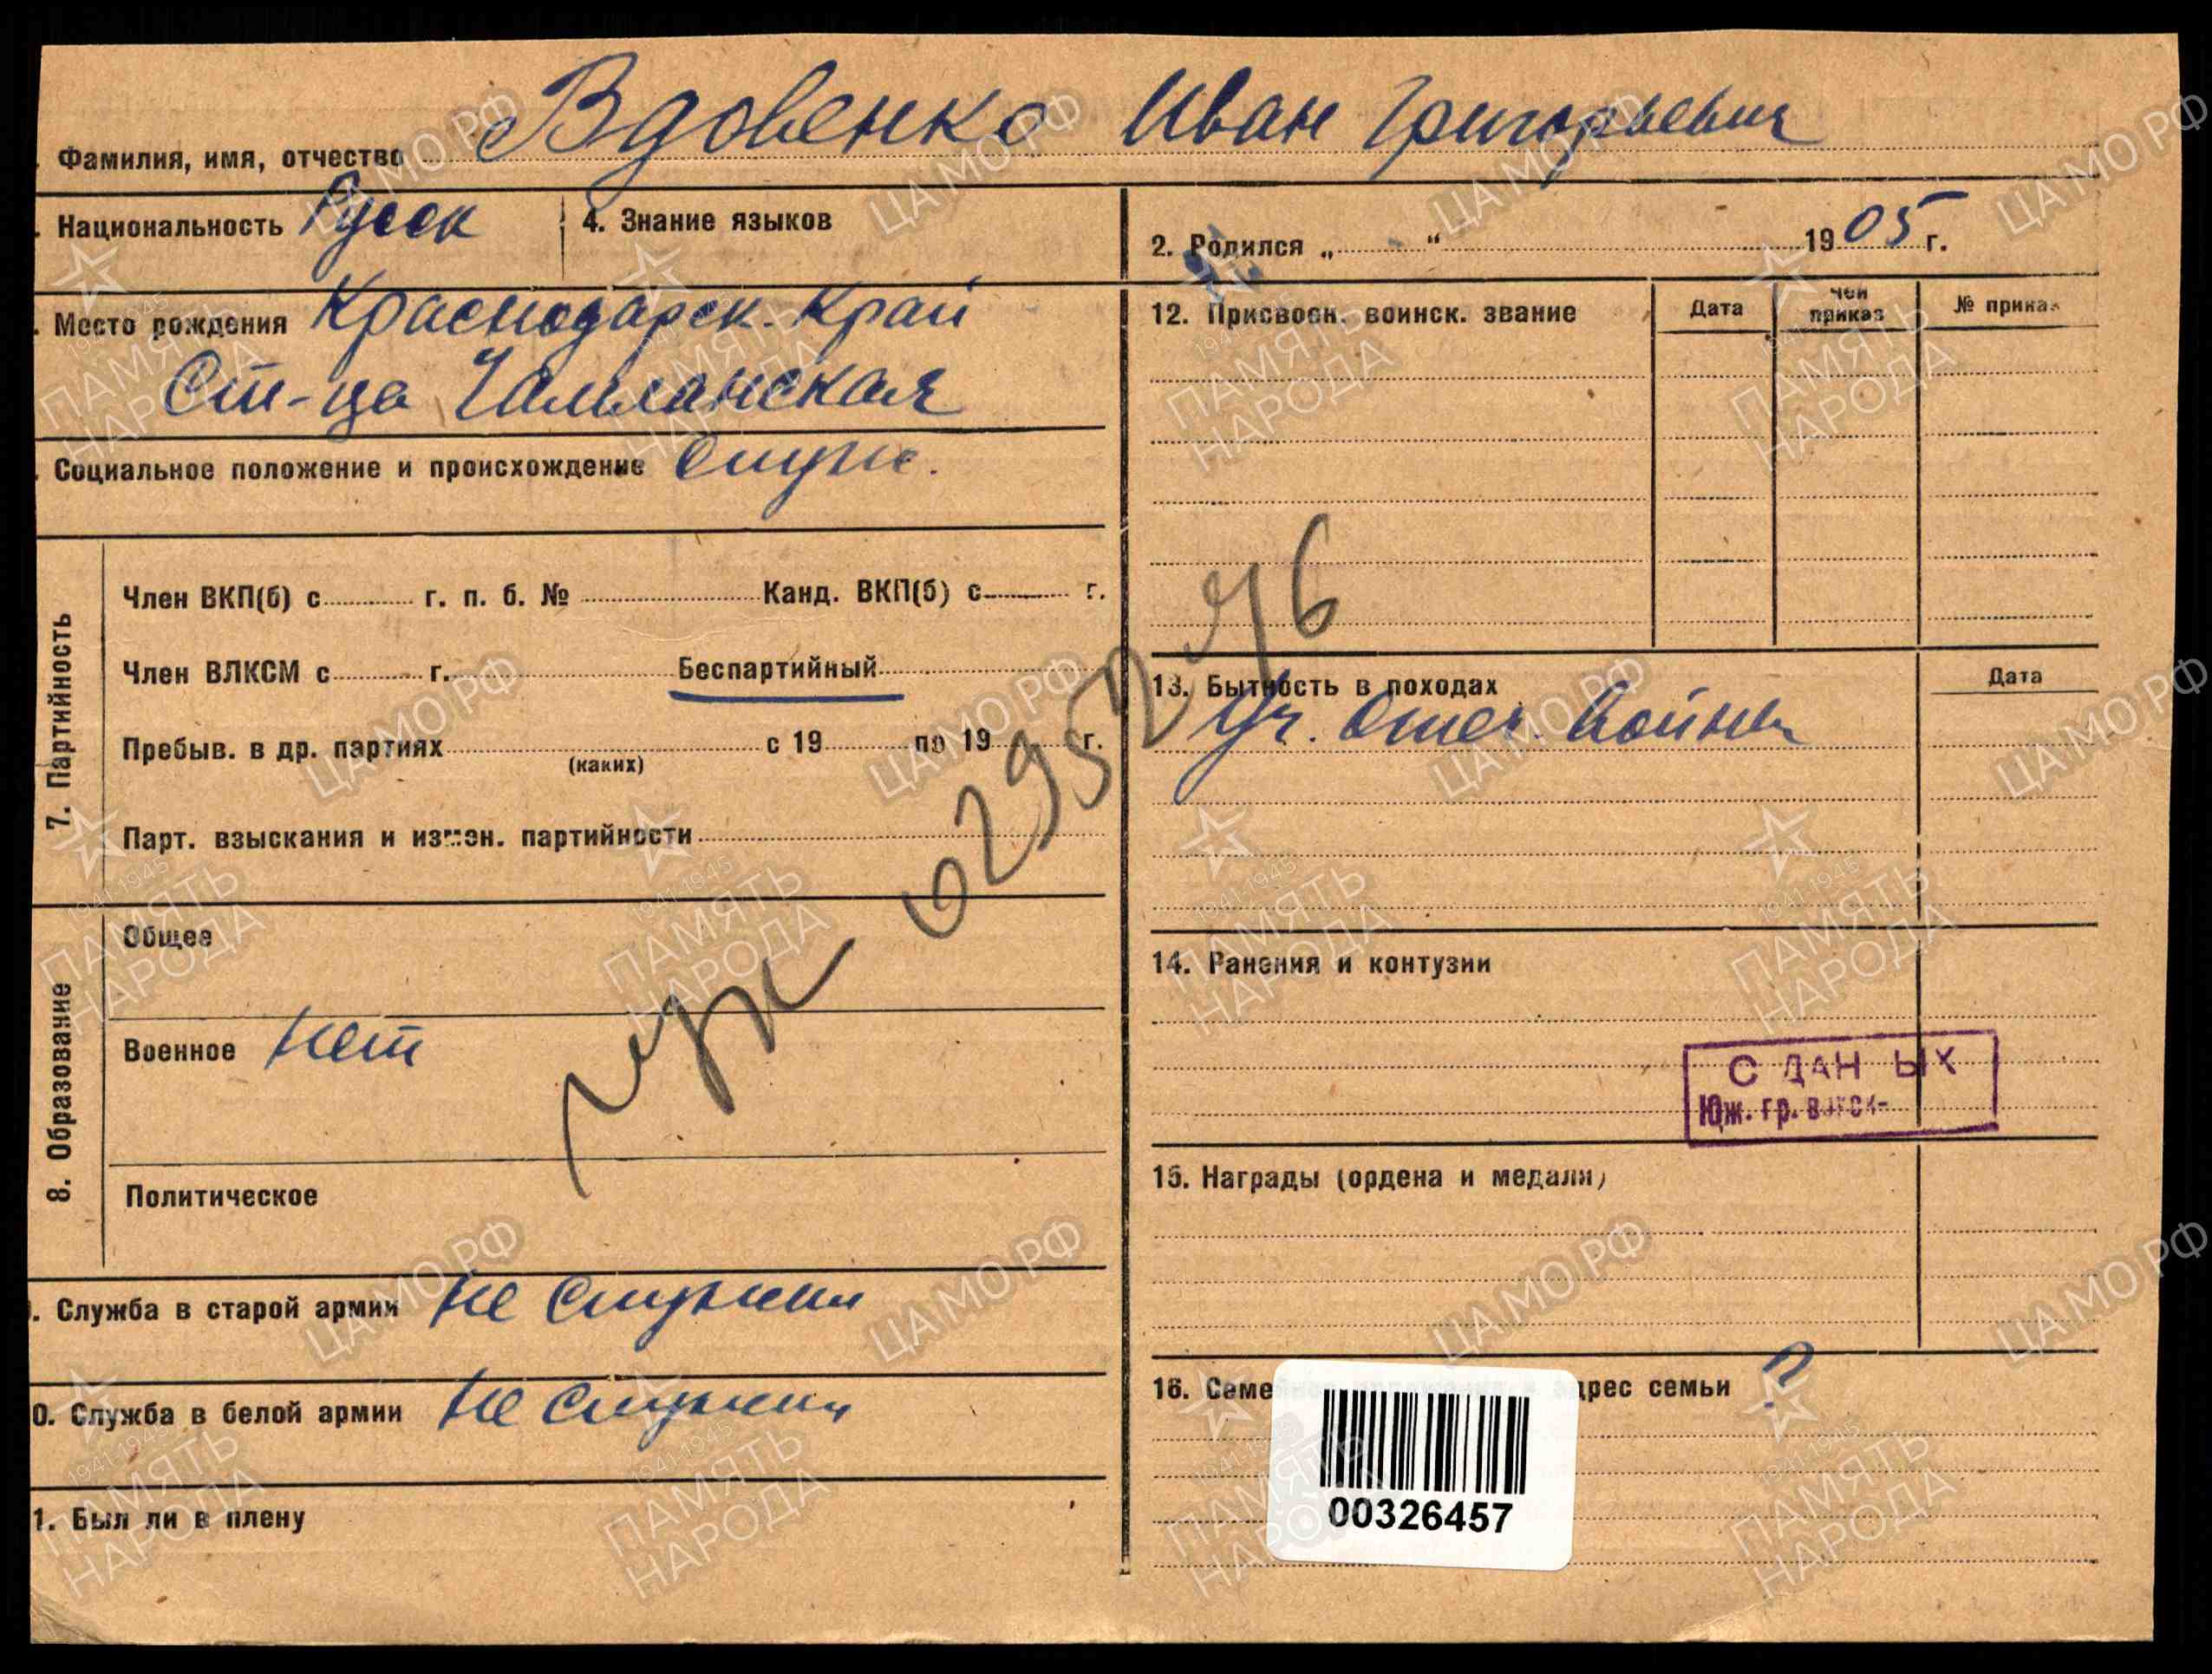 Фамилия, имя, отчество Вдовенко Иван Григорьевич
Национальность Русск
4. Знание языков
2. Родился „ “ 1905 г.
Место рождения Краснодарск. Край
Ст-ца Чамлакская
Социальное положение и происхождение служ.
7. Партийность
Член ВКП(б) с г. п. б. № Канд. ВКП(б) с г.
Член ВЛКСМ с г. Беспартийный
Пребыв. в др. партиях (каких) с 19 по 19 г.
Парт. взыскания и измен. партийности
8. Образование
Общее
Военное Нет
Политическое
. Служба в старой армии не служил
0. Служба в белой армии не служил
1. Был ли в плену
12. Присвоен. воинск. звание
Дата
Чей приказ
№ приказ
13. Бытность в походах
Дата
Уч. Отеч. Войны
14. Ранения и контузии
С ДАН ЫХ
Юж. гр. войск
15. Награды (ордена и медали)
16. Семе адрес семьи ?
00326457
ЦАМО РФ
1941-1945
ПАМЯТЬ
НАРОДА